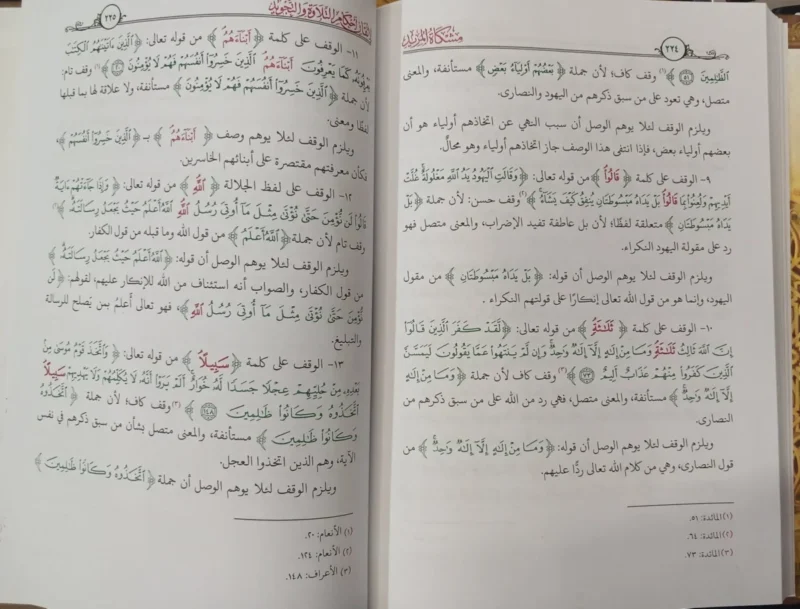 مشكاة المريد
٢٢٤
الظَّٰلِمِينَ ﴾(١) وقف كاف؛ لأن جملة ﴿ بَعْضُهُمْ أَوْلِيَآءُ بَعْضٍ ﴾ مستأنفة، والمعنى
متصل، وهي تعود على من سبق ذكرهم من اليهود والنصارى.
ويلزم الوقف لئلا يوهم الوصل أن سبب النهي عن اتخاذهم أولياء هو أن
بعضهم أولياء بعض، فإذا انتفى هذا الوصف جاز اتخاذهم أولياء وهو محالٌ.
٩- الوقف على كلمة ﴿ قَالُوا۟ ﴾ من قوله تعالى: ﴿ وَقَالَتِ ٱلْيَهُودُ يَدُ ٱللَّهِ مَغْلُولَةٌ غُلَّتْ
أَيْدِيهِمْ وَلُعِنُوا۟ بِمَا قَالُوا۟ بَلْ يَدَاهُ مَبْسُوطَتَانِ يُنفِقُ كَيْفَ يَشَآءُ ﴾(٢) وقف حسن: لأن جملة ﴿ بَلْ
يَدَاهُ مَبْسُوطَتَانِ ﴾ متعلقة لفظًا؛ لأن بل عاطفة تفيد الإضراب، والمعنى متصل فهو
رد على مقولة اليهود النكراء.
ويلزم الوقف لئلا يوهم الوصل أن قوله: ﴿ بَلْ يَدَاهُ مَبْسُوطَتَانِ ﴾ من مقول
اليهود، وإنما هو من قول الله تعالى إنكارًا على قولتهم النكراء .
١٠- الوقف على كلمة ﴿ ثَلَٰثَةٍ ﴾ من قوله تعالى: ﴿ لَّقَدْ كَفَرَ ٱلَّذِينَ قَالُوٓا۟
إِنَّ ٱللَّهَ ثَالِثُ ثَلَٰثَةٍ وَمَا مِنْ إِلَٰهٍ إِلَّآ إِلَٰهٌ وَٰحِدٌ وَإِن لَّمْ يَنتَهُوا۟ عَمَّا يَقُولُونَ لَيَمَسَّنَّ
ٱلَّذِينَ كَفَرُوا۟ مِنْهُمْ عَذَابٌ أَلِيمٌ ٧٣ ﴾(٣) وقف كاف لأن جملة ﴿ وَمَا مِنْ إِلَٰهٍ
إِلَّآ إِلَٰهٌ وَٰحِدٌ ﴾ مستأنفة، والمعنى متصل، فهي رد من الله على من سبق ذكرهم من
النصارى.
ويلزم الوقف لئلا يوهم الوصل أن قوله: ﴿ وَمَا مِنْ إِلَٰهٍ إِلَّآ إِلَٰهٌ وَٰحِدٌ ﴾ من
قول النصارى، وهي من كلام الله تعالى ردًّا عليهم.
(١) المائدة: ٥١.
(٢) المائدة: ٦٤.
(٣) المائدة: ٧٣.
أحكام التلاوة والتجويد
٢٢٥
١١- الوقف على كلمة ﴿ أَبْنَآءَهُمُ ﴾ من قوله تعالى: ﴿ ٱلَّذِينَ ءَاتَيْنَٰهُمُ ٱلْكِتَٰبَ
يَعْرِفُونَهُۥ كَمَا يَعْرِفُونَ أَبْنَآءَهُمُ ٱلَّذِينَ خَسِرُوٓا۟ أَنفُسَهُمْ فَهُمْ لَا يُؤْمِنُونَ ٢٠ ﴾(١) وقف تام:
لأن جملة ﴿ ٱلَّذِينَ خَسِرُوٓا۟ أَنفُسَهُمْ فَهُمْ لَا يُؤْمِنُونَ ﴾ مستأنفة، ولا علاقة لها بما قبلها
لفظًا ومعنى.
ويلزم الوقف لئلا يوهم وصف ﴿ أَبْنَآءَهُمُ ﴾ بـ ﴿ ٱلَّذِينَ خَسِرُوٓا۟ أَنفُسَهُمْ ﴾،
فكأن معرفتهم مقتصرة على أبنائهم الخاسرين.
١٢- الوقف على لفظ الجلالة ﴿ ٱللَّهِ ﴾ من قوله تعالى: ﴿ وَإِذَا جَآءَتْهُمْ ءَايَةٌ
قَالُوا۟ لَن نُّؤْمِنَ حَتَّىٰ نُؤْتَىٰ مِثْلَ مَآ أُوتِىَ رُسُلُ ٱللَّهِ ٱللَّهُ أَعْلَمُ حَيْثُ يَجْعَلُ رِسَالَتَهُۥ ﴾(٢)
وقف تام لأن جملة ﴿ ٱللَّهُ أَعْلَمُ ﴾ من قول الله وما قبله من قول الكفار.
ويلزم الوقف لئلا يوهم الوصل أن قوله: ﴿ ٱللَّهُ أَعْلَمُ حَيْثُ يَجْعَلُ رِسَالَتَهُۥ ﴾
من قول الكفار، والصواب أنه استئناف من الله للإنكار عليهم، لقولهم: ﴿ لَن
نُّؤْمِنَ حَتَّىٰ نُؤْتَىٰ مِثْلَ مَآ أُوتِىَ رُسُلُ ٱللَّهِ ﴾، فهو تعالى أعلمُ بمن يَصلح للرسالة
والتبليغ.
١٣- الوقف على كلمة ﴿ سَبِيلًا ﴾ من قوله تعالى: ﴿ وَٱتَّخَذَ قَوْمُ مُوسَىٰ مِنۢ
بَعْدِهِۦ مِنْ حُلِيِّهِمْ عِجْلًا جَسَدًا لَّهُۥ خُوَارٌ أَلَمْ يَرَوْا۟ أَنَّهُۥ لَا يُكَلِّمُهُمْ وَلَا يَهْدِيهِمْ سَبِيلًا
ٱتَّخَذُوهُ وَكَانُوا۟ ظَٰلِمِينَ ١٤٨ ﴾(٣) وقف كاف؛ لأن جملة ﴿ ٱتَّخَذُوهُ
وَكَانُوا۟ ظَٰلِمِينَ ﴾ مستأنفة، والمعنى متصل بشأن من سبق ذكرهم في نفس
الآية، وهم الذين اتخذوا العجل.
ويلزم الوقف لئلا يوهم الوصل أن جملة ﴿ ٱتَّخَذُوهُ وَكَانُوا۟ ظَٰلِمِينَ ﴾
(١) الأنعام: ٢٠.
(٢) الأنعام: ١٢٤.
(٣) الأعراف: ١٤٨.